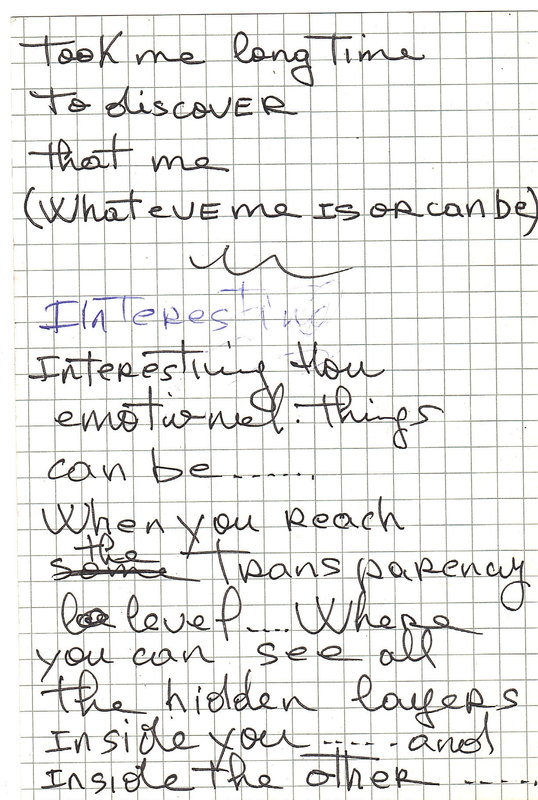 took me long Time
To discovER
that me
(WhateVE me IS OR can be)
Interesting
Interesting How
emotional. things
can be......
When you Reach
the
some Transparency
lo level.... Where
you can see all
the hidden layers
Inside you ..... and
Inside the other .....